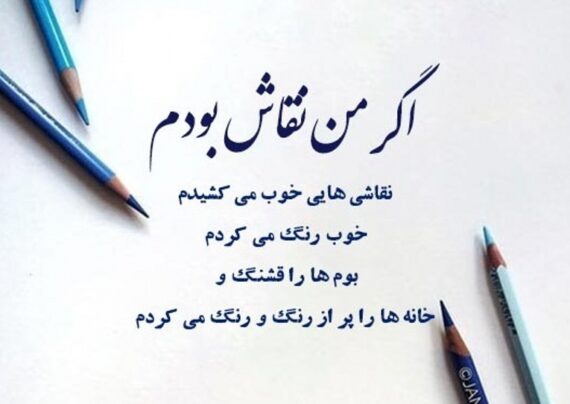 اگر من نقاش بودم
نقاشی هایی خوب می کشیدم
خوب رنگ می کردم
بوم ها را قشنگ و
خانه ها را پر از رنگ و رنگ می کردم
©JAN